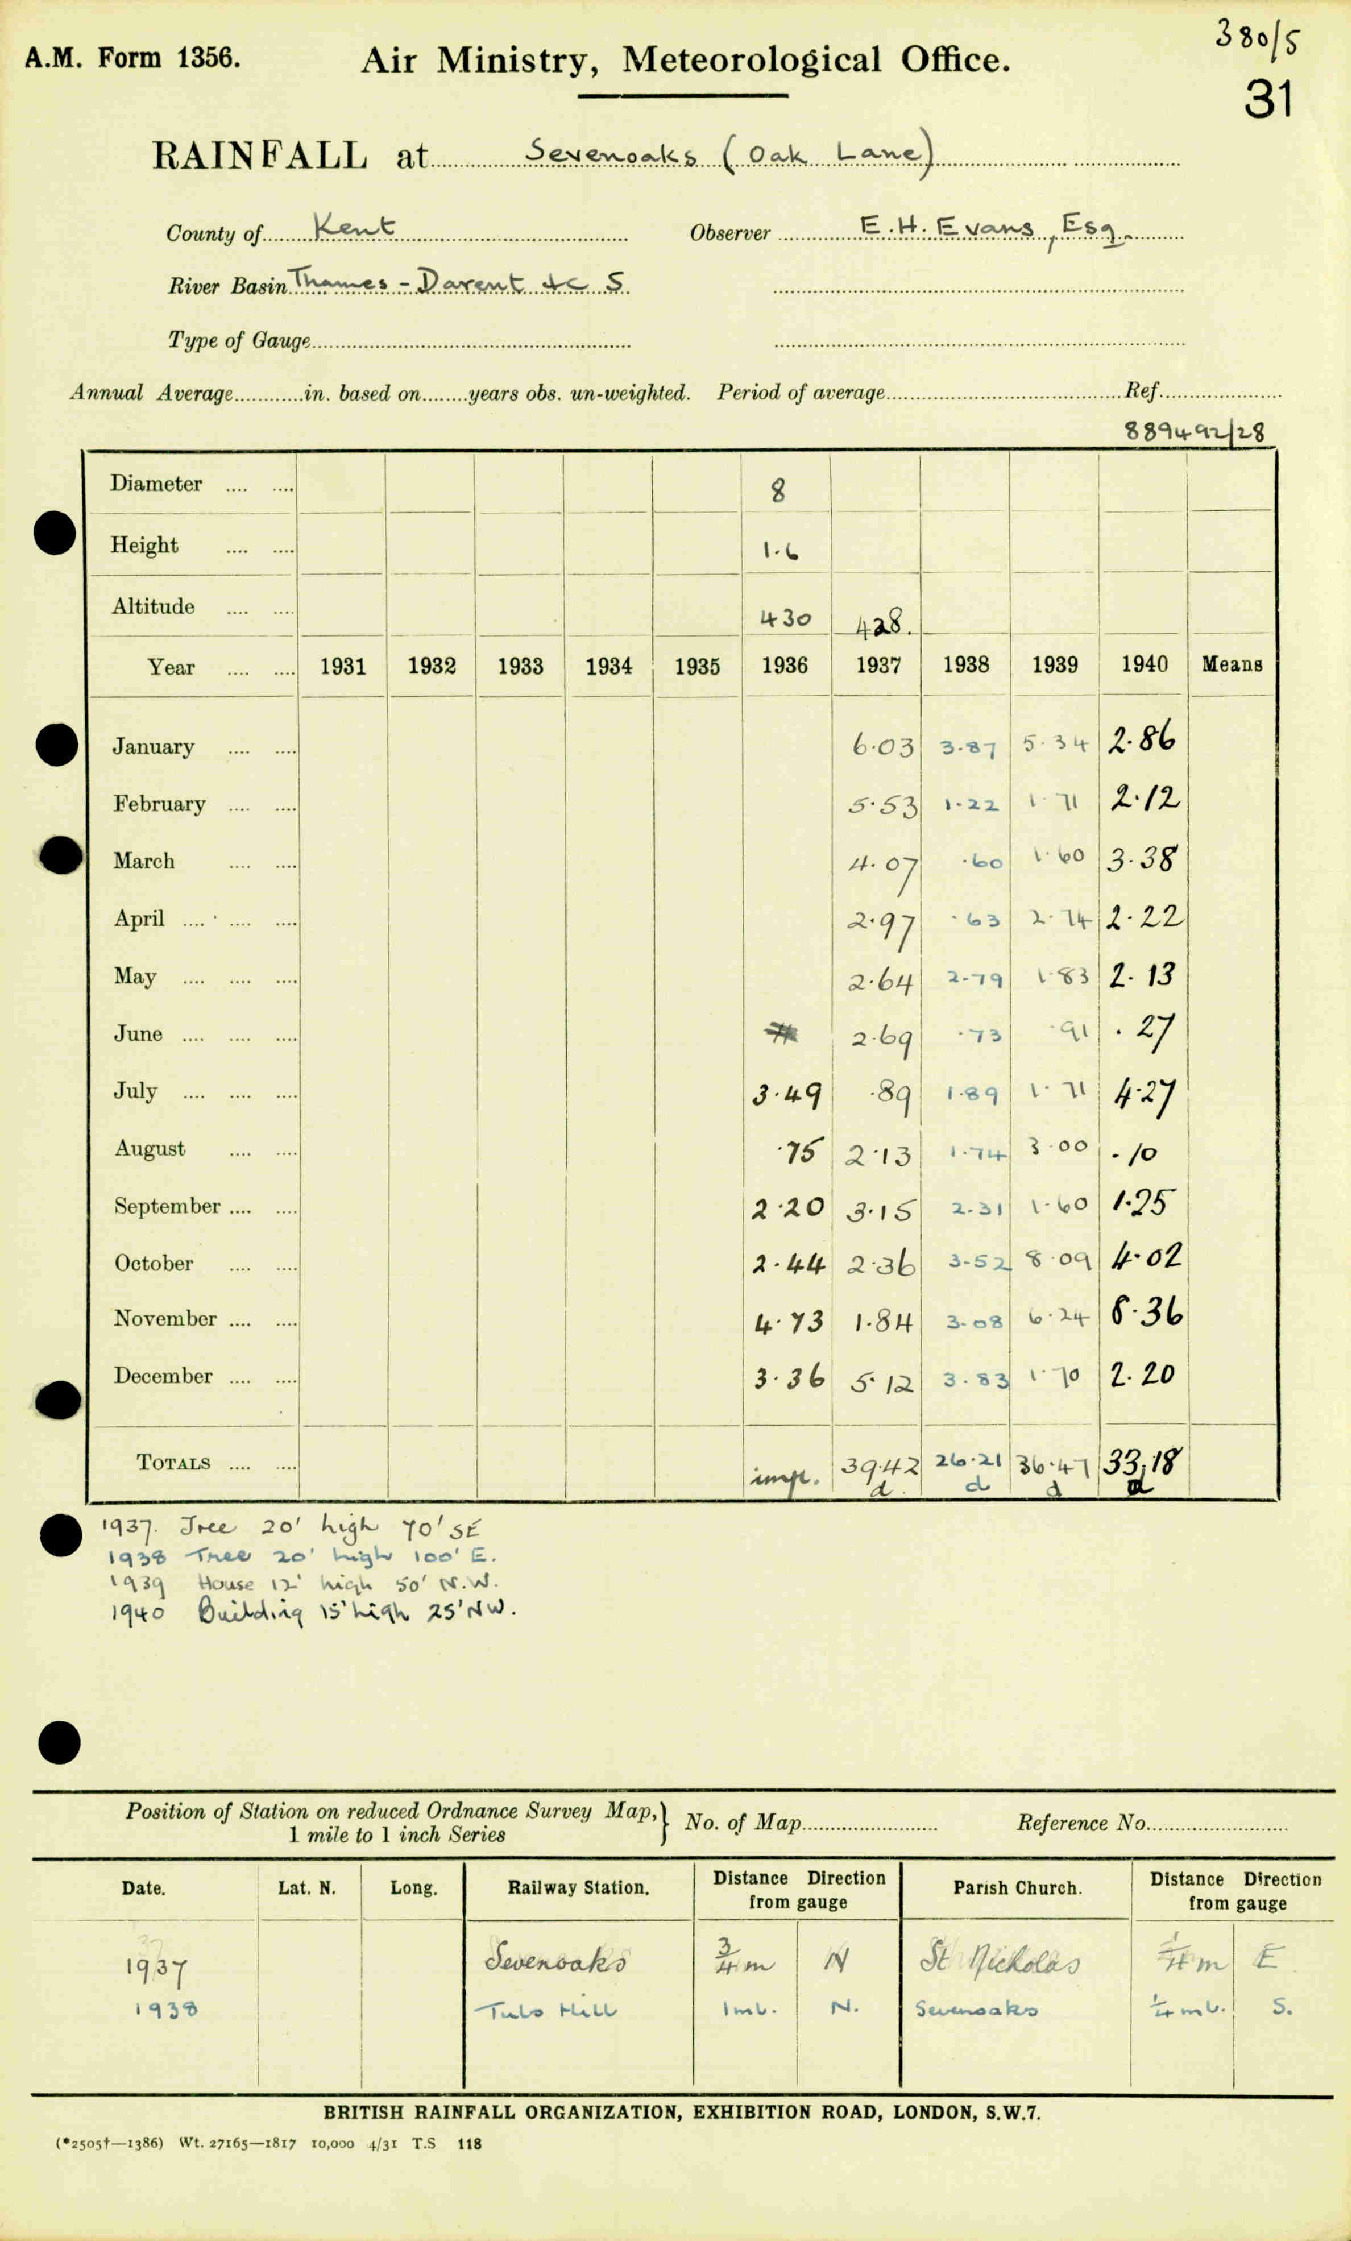 380/5
A.M. Form 1356. Air Ministry, Meteorological Office.
31
RAINFALL at Sevenoaks (Oak Lane)
County of Kent Observer E.H. Evans, Esq.
River Basin Thames - Darent &c S
Type of Gauge
Annual Average in. based on years obs. un-weighted. Period of average Ref.
889492/28
Diameter 8
Height 1.6
Altitude 430 428.
Year 1931 1932 1933 1934 1935 1936 1937 1938 1939 1940 Means
January 6.03 3.87 5.34 2.86
February 5.53 1.22 1.71 2.12
March 4.07 .60 1.60 3.38
April 2.97 .63 2.74 2.22
May 2.64 2.79 1.83 2.13
June 2.69 .73 .91 .27
July 3.49 .89 1.89 1.71 4.27
August .75 2.13 1.74 3.00 .10
September 2.20 3.15 2.31 1.60 1.25
October 2.44 2.36 3.52 8.09 4.02
November 4.73 1.84 3.08 6.24 8.36
December 3.36 5.12 3.83 1.70 2.20
TOTALS impf. 39.42 26.21 36.47 33.18
d d d d
1937. Tree 20' high 70' SE
1938 Tree 20' high 100' E.
1939 House 12' high 50' N.W.
1940 Building 15' high 25' NW.
Position of Station on reduced Ordnance Survey Map, 1 mile to 1 inch Series } No. of Map Reference No.
Date. Lat. N. Long. Railway Station. Distance Direction from gauge Parish Church. Distance Direction from gauge
1937 Sevenoaks 3/4 m N St Nicholas 1/4 m E
1938 Tubs Hill 1 ml. N. Sevenoaks 1/4 ml. S.
BRITISH RAINFALL ORGANIZATION, EXHIBITION ROAD, LONDON, S.W.7.
(*2505†—1386) Wt. 27165—1817 10,000 4/31 T.S 118